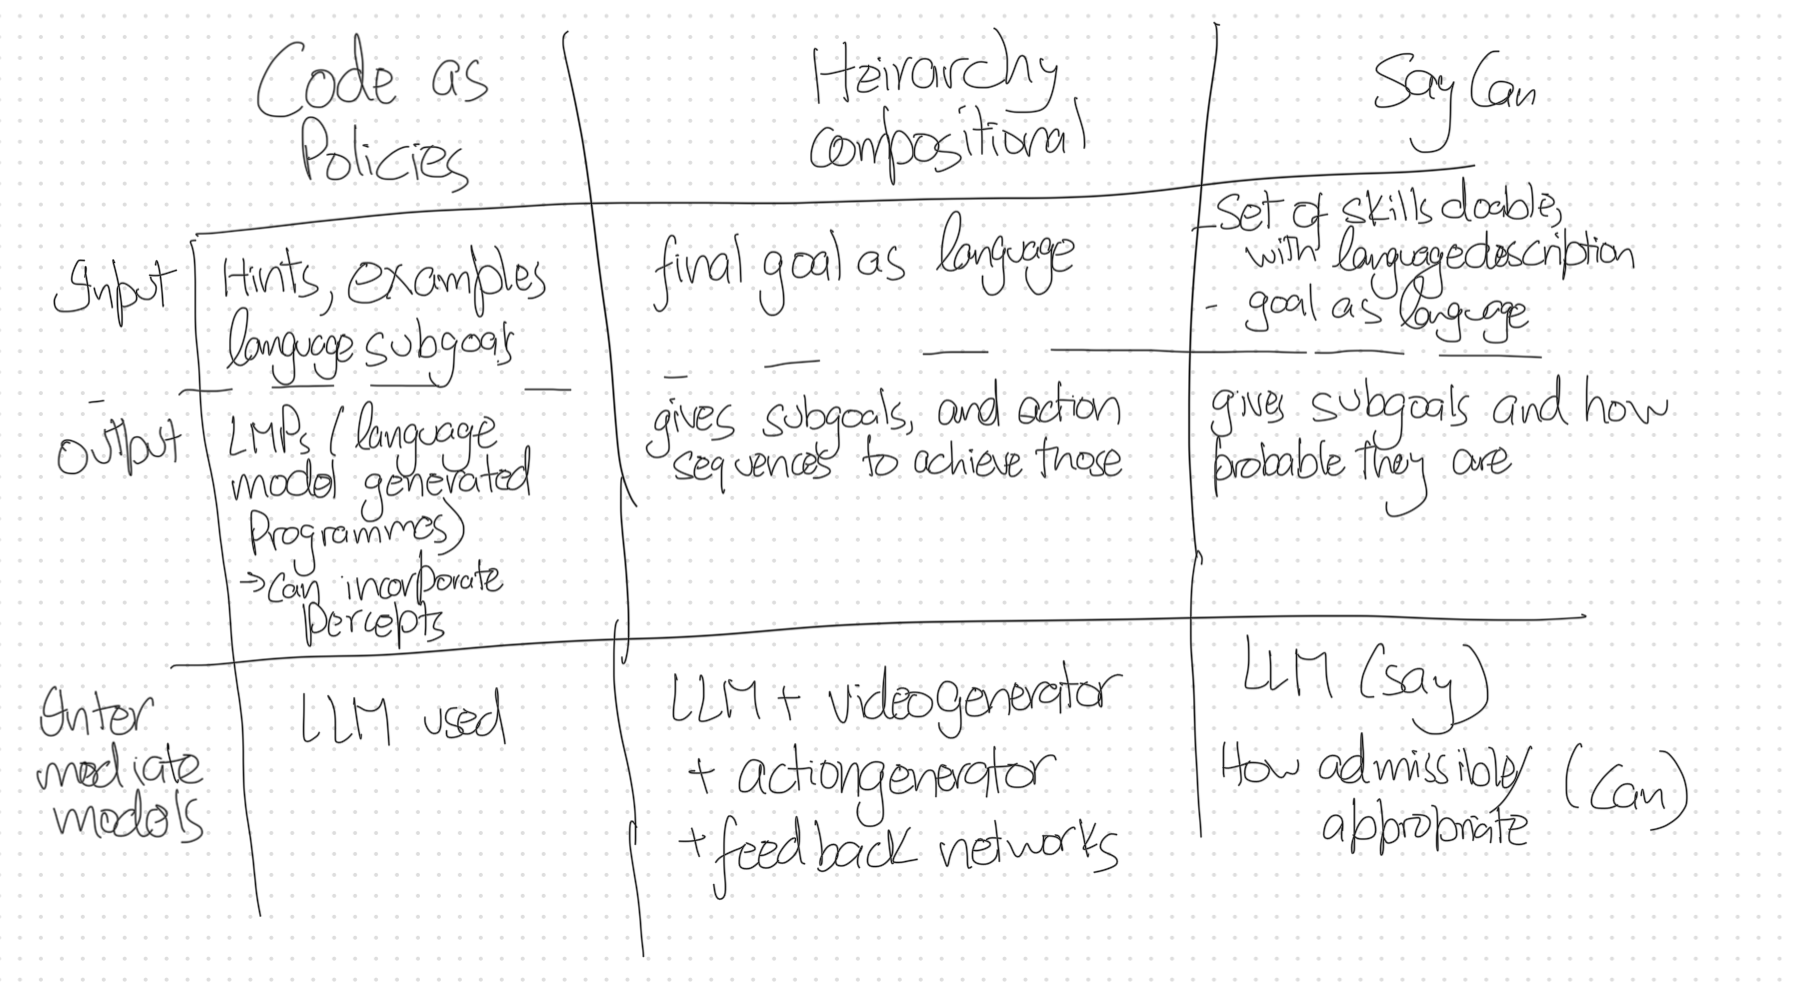 Code as
Policies
Heirarchy
compositional
Say Can
Input
Hints, examples
language subgoals
final goal as language
- Set of skills doable,
with language description
- goal as language
Output
LMPs (language
model generated
Programmes)
→ Can incorporate
percepts
gives subgoals, and action
sequences to achieve those
gives subgoals and how
probable they are
Inter
mediate
models
LLM used
LLM + video generator
+ action generator
+ feedback networks
LLM (say)
How admissible/
appropriate
(Can)